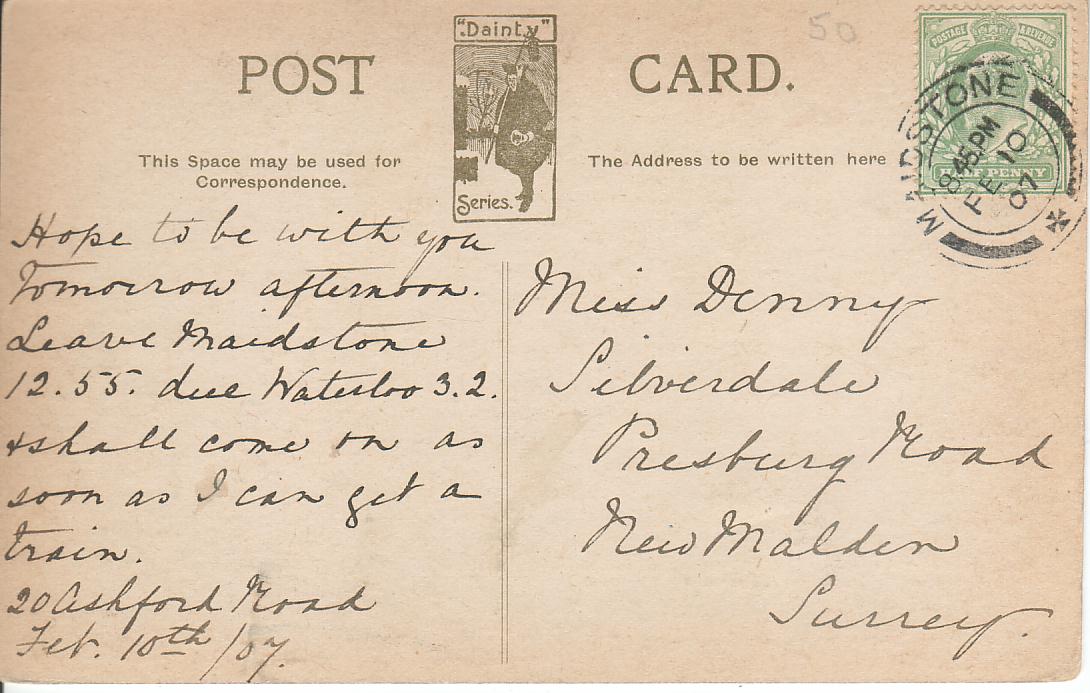 "Dainty"
Series.
POST CARD.
50
This Space may be used for
Correspondence.
The Address to be written here
POSTAGE & REVENUE
HALF PENNY
MAIDSTONE
8 45 PM
FE 10
07
Hope to be with you
Tomorrow afternoon.
Leave Maidstone
12.55. due Waterloo 3.2.
& shall come on as
soon as I can get a
train.
20 Ashford Road
Feb. 10th /07.
Miss Denny
Silverdale
Presburg Road
New Malden
Surrey.